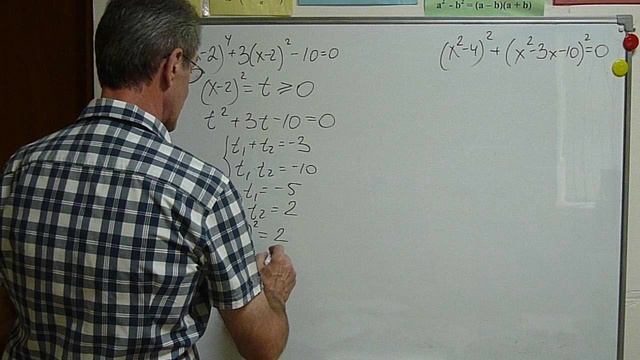 a² - b² = (a – b)(a + b)
-2)⁴ + 3(x-2)² - 10 = 0
(x-2)² = t ⩾ 0
t² + 3t - 10 = 0
t₁ + t₂ = -3
t₁ t₂ = -10
t₁ = -5
t₂ = 2
² = 2
(x²-4)² + (x²-3x-10)² = 0